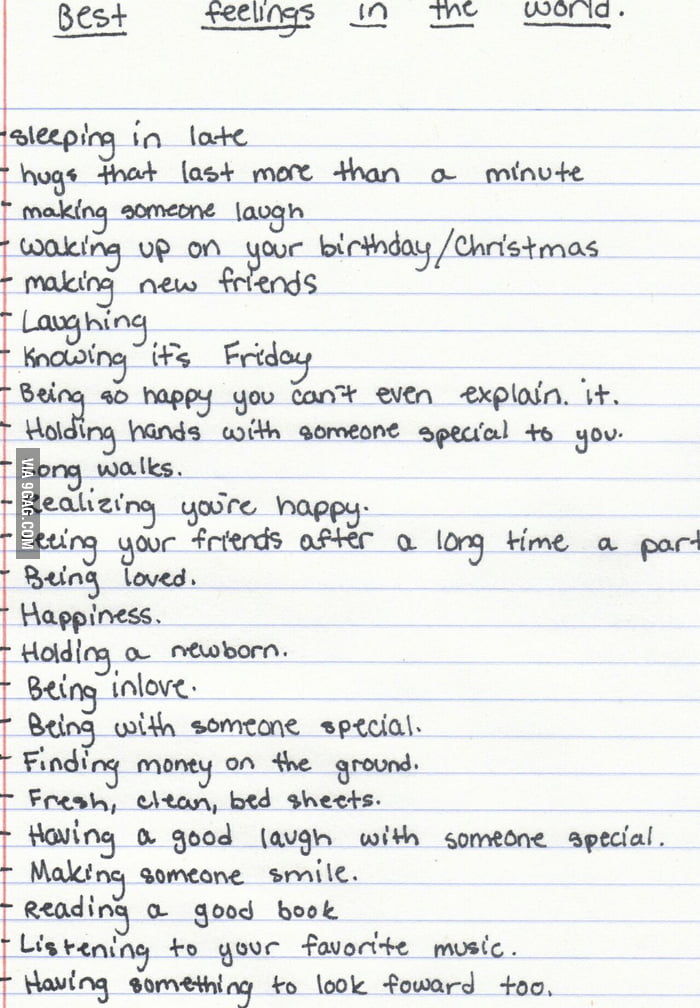 Best feelings in the world.
-sleeping in late
- hugs that last more than a minute
- making someone laugh
- waking up on your birthday/Christmas
- making new friends
- Laughing
- Knowing it's Friday
- Being so happy you can't even explain. it.
- Holding hands with someone special to you.
- Long walks.
- Realizing you're happy.
- Seeing your friends after a long time a part
- Being loved.
- Happiness.
- Holding a newborn.
- Being inlove.
- Being with someone special.
- Finding money on the ground.
- Fresh, clean, bed sheets.
- Having a good laugh with someone special.
- Making someone smile.
- Reading a good book
- Listening to your favorite music.
- Having something to look foward too.
VIA 9GAG.COM